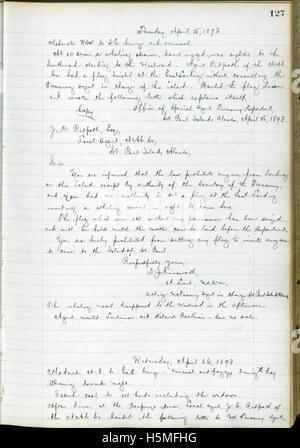 127
Tuesday, April 25, 1893
Moderate West to S.E. breeze and overcast.
At 10 a.m. a whaling steamer, barkrigged, was sighted to the
Southward steering to the Westward. Agent Redpath of the NACCo
had a flag hoisted at the East landing without consulting the
Treasury Agent in charge of the island. Hauled the flag down
and wrote the following letter which explains itself.
Copy
Office of Special Agent Treasury Department,
St. Paul Island, Alaska, April 25, 1893.
J. C. Redpath, Esq,
Local Agent, NACCo,
St. Paul Island, Alaska.
Sir
You are informed that the law prohibits any one from landing
on this island except by authority of the Secretary of the Treasury,
and you had no authority to set a flag at the East Landing
inviting a whaling vessel's to come here.
The flag which was set without my permission has been seized
and will be held until the matter can be laid before the department.
You are hereby prohibited from setting any flag to invite anyone
to come to the Island of St. Paul
Respectfully yours,
acting Treasury Agent in charge St. Paul Island
The whaling vessel disappeared to the Westward in the afternoon
Agent visited Zoltoi and Reef Rookeries - saw no seals.
Wednesday, April 26, 1893.
Moderate N.E. to East breeze - overcast and foggy during the day
Issued coal to all hands including the widows
After dinner at the Company house, Local agent J. C. Redpath of
the NACCo handed the following letter to the Treasury agent.
alamy
H5MFHG